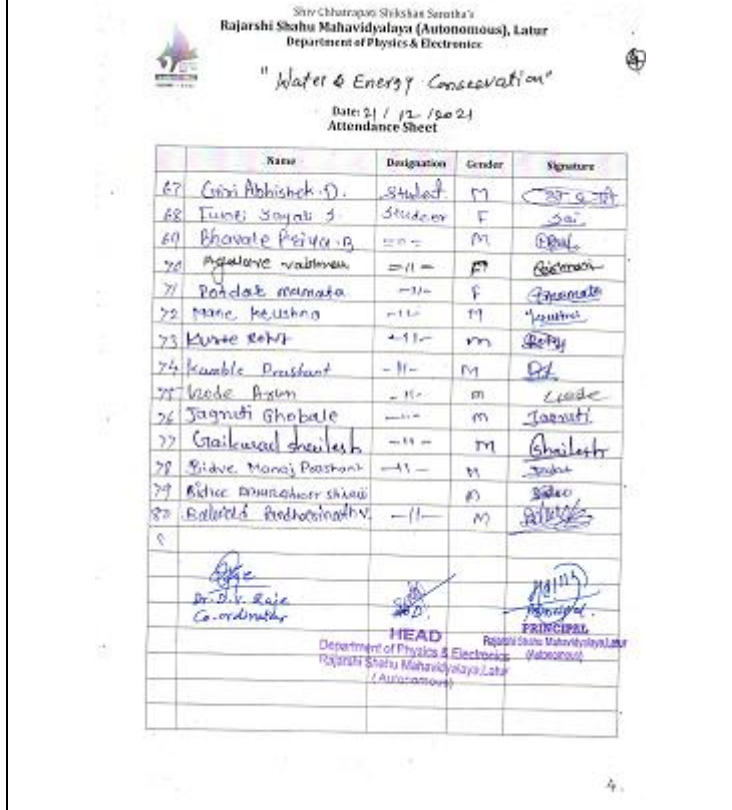 Shiv Chhatrapati Shikshan Sanstha's
Rajarshi Shahu Mahavidyalaya (Autonomous), Latur
Department of Physics & Electronics
"Water & Energy Conservation"
Date: 21 / 12 / 2021
Attendance Sheet
Name Designation Gender Signature
67 Giri Abhishek.D. Student M
68 Sayali S. Student F Sai
69 Bhavale Priya.B =〃= M
70 Vaibhavi =〃= F
71 Potdar mamata -〃- F
72 Mane Krushna -〃- M
73 Kurre Rohit -〃- m
74 Kamble Prashant -〃- M
75 Arun -〃- m
76 Jagruti Ghobale -〃- m Jagruti
77 Gaikwad Shailesh -〃- m Shailesh
78 Bidve Manoj Prashant -〃- M
79 Bidve m
80 -〃- M
Dr. D.V. Raje
Co-ordinator
HOD
Principal
HEAD
Department of Physics & Electronics
Rajarshi Shahu Mahavidyalaya, Latur
(Autonomous)
PRINCIPAL
Rajarshi Shahu Mahavidyalaya, Latur
(Autonomous)
4.